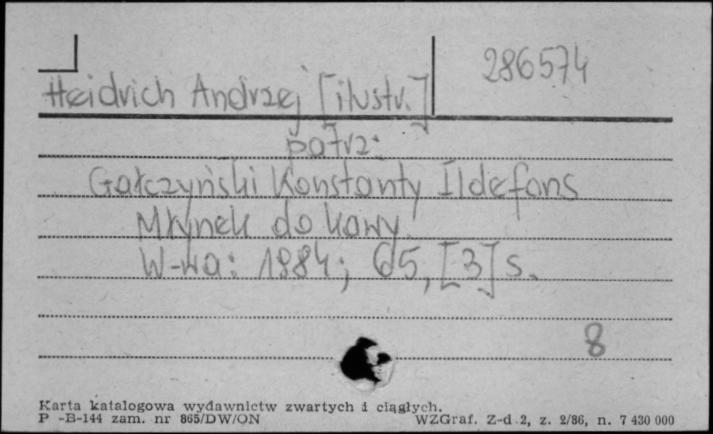 286574
Heidrich Andrzej [ilustr.]
patrz:
Gałczyński Konstanty Ildefons
Młynek do kawy.
W-wa: 1984; 65, [3] s.
8
Karta katalogowa wydawnictw zwartych i ciągłych.
P -B-144 zam. nr 865/DW/ON WZGraf. Z-d 2, z. 2/86, n. 7 430 000